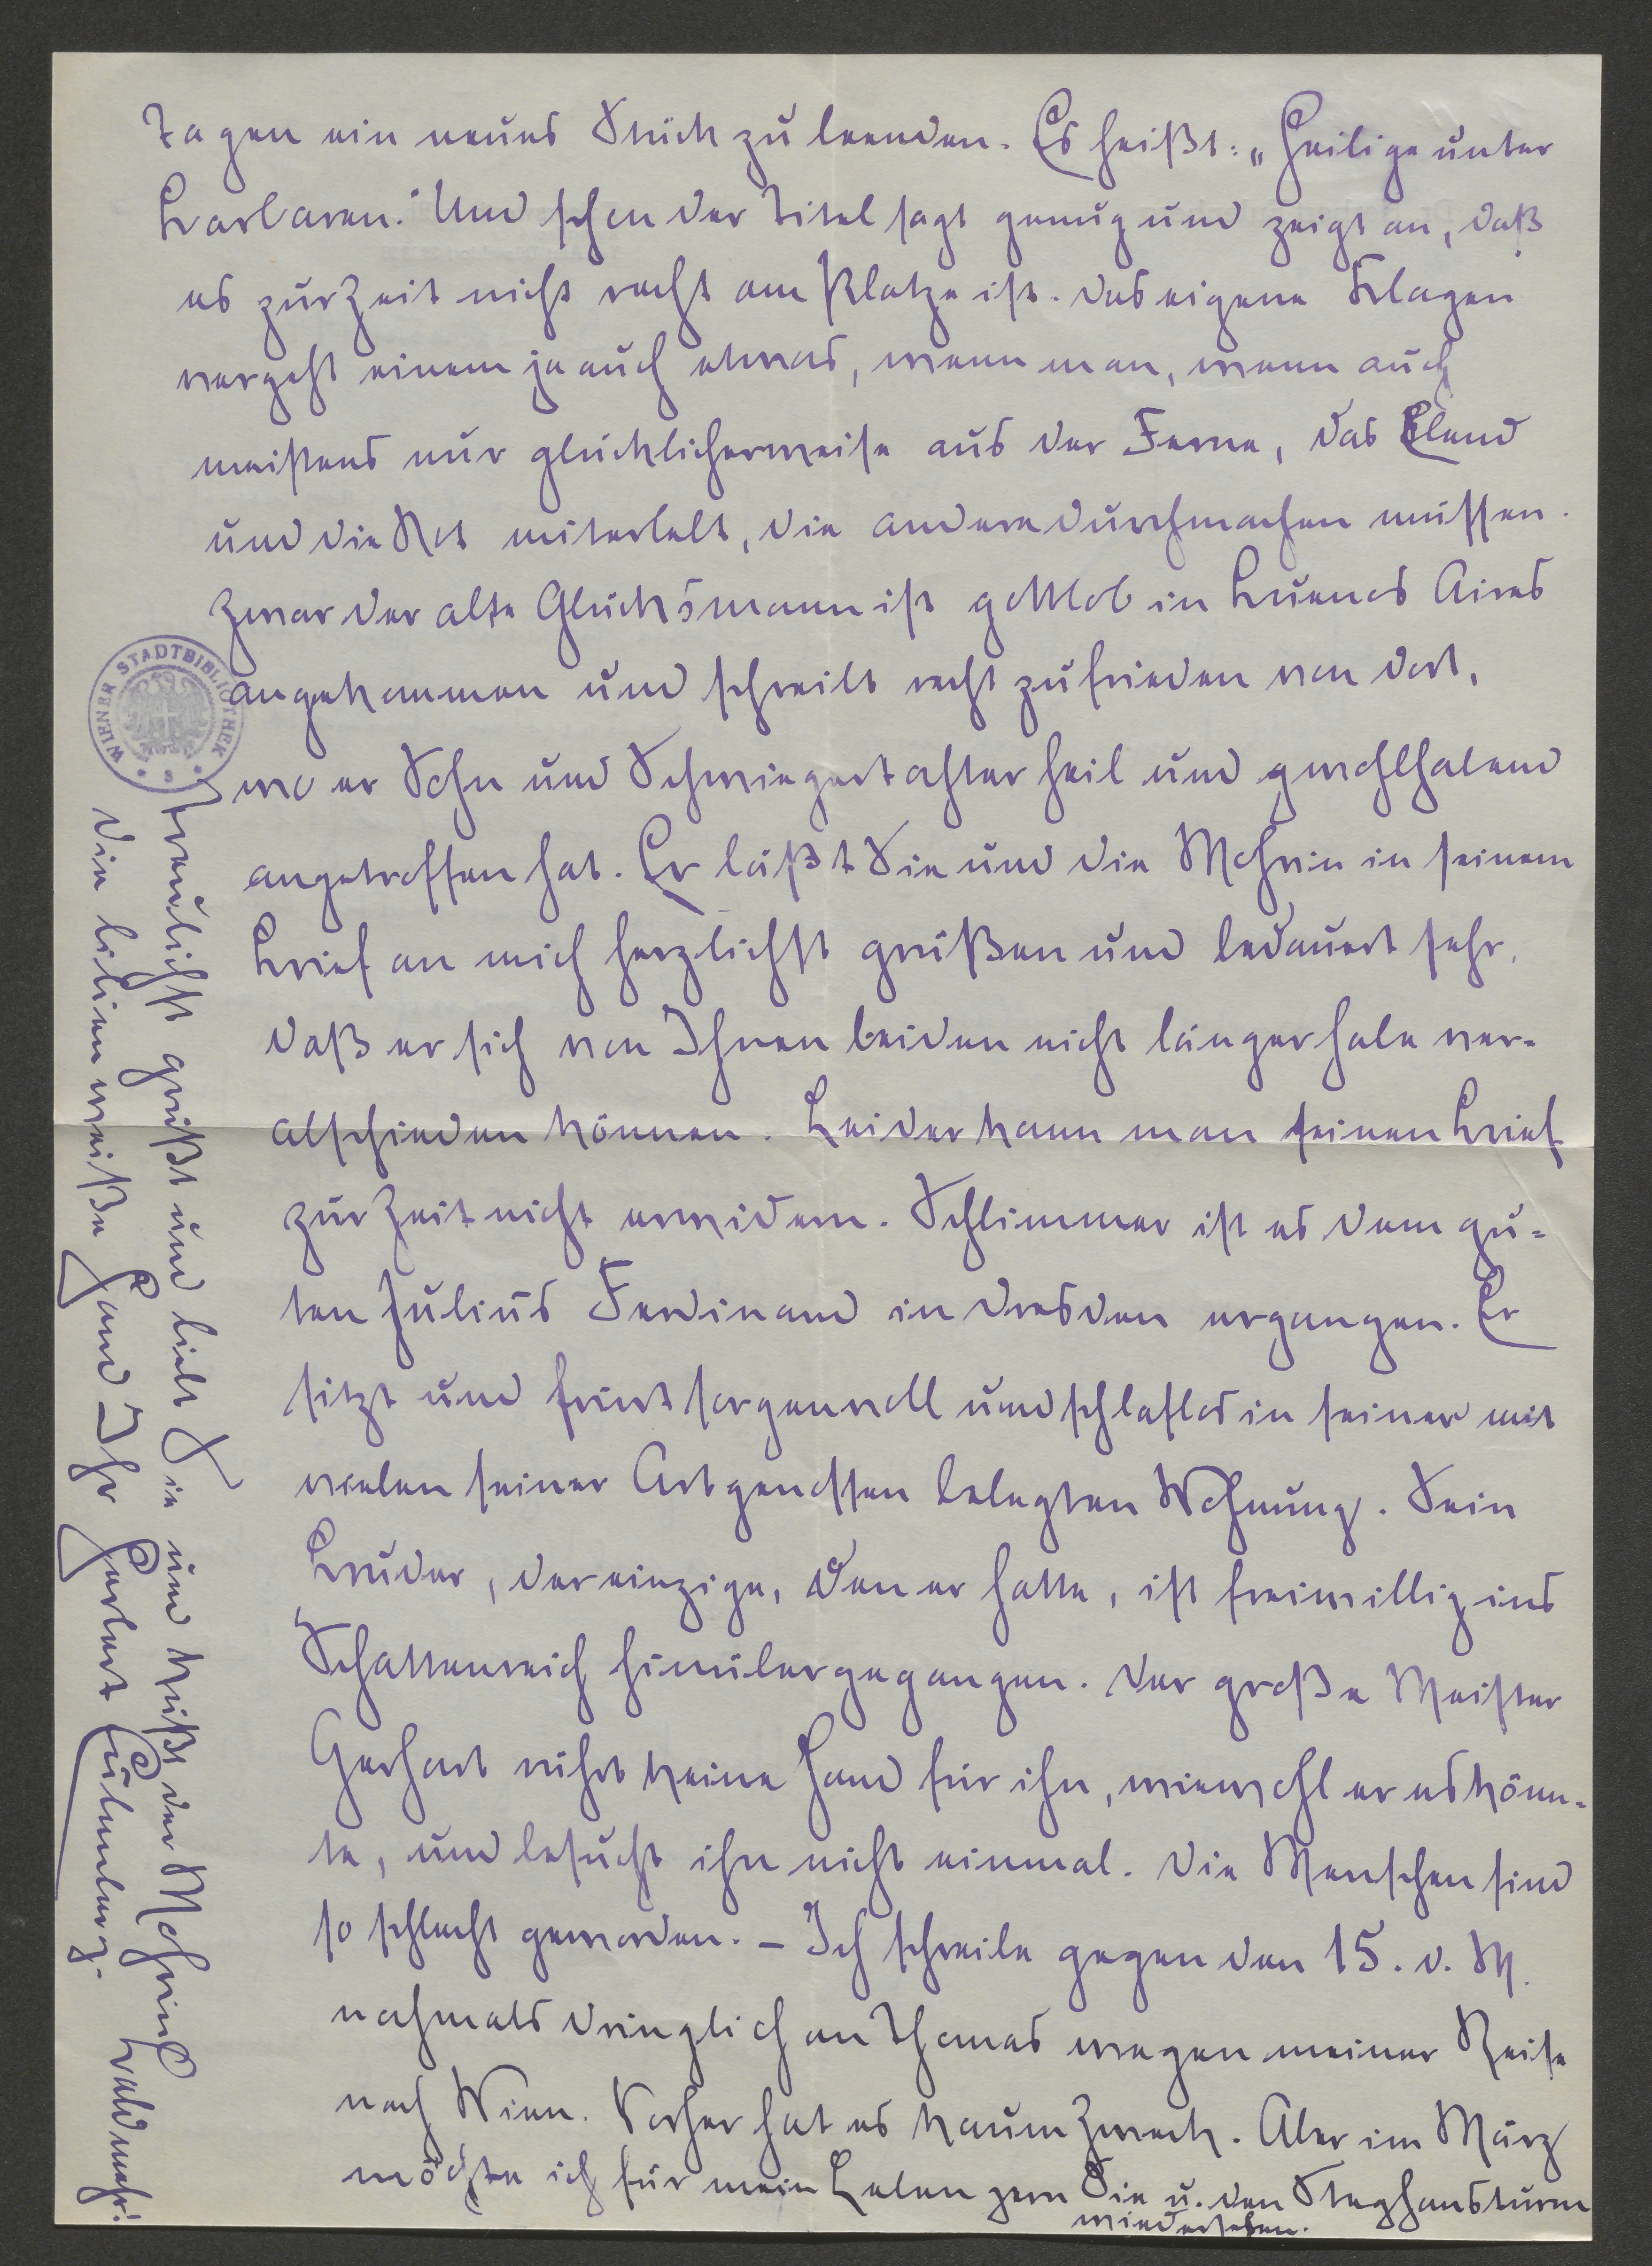 Tagen ein neues Stück zu beenden. Es heißt: „Heilige unter
Barbaren." Und schon der Titel sagt genug und zeigt an, daß
es zur Zeit nicht recht am Platze ist. Das eigene Klagen
vergeht einem ja auch etwas, wenn man, wenn auch
meistens nur glücklicherweise aus der Ferne, das Elend
und die Not miterlebt, die andere durchmachen müssen.
Zwar der alte Glücksmann ist gottlob in Buenos Aires
angekommen und schreibt recht zufrieden von dort,
wo er Sohn und Schwiegertochter heil und wohlhabend
angetroffen hat. Er läßt Sie und die Mohrin in seinem
Brief an mich herzlichst grüßen und bedauert sehr,
daß er sich von Ihnen beiden nicht länger habe ver-
abschieden können. Leider kann man seinen Brief
zur Zeit nicht erwidern. Schlimmer ist es dem gu-
ten Julius Ferdinand in Dresden ergangen. Er
sitzt und friert sorgenvoll und schlaflos in seiner mit
vielen seiner Artgenossen belegten Wohnung. Sein
Bruder, der einzige, den er hatte, ist freiwillig ins
Schattenreich hinübergegangen. Der große Meister
Gerhart rührt keine Hand für ihn, wiewohl er es könn-
te, und besucht ihn nicht einmal. Die Menschen sind
so schlecht geworden. – Ich schreibe gegen den 15. d. M.
nochmals dringlich an Thomas wegen meiner Reise
nach Wien. Vorher hat es kaum Zweck. Aber im März
möchte ich für mein Leben gern Sie u. den Steghansturm
wiedersehen.
Treulichst grüßt und liebt Sie und küßt der Mohrin
die lilienweiße Hand Ihr Herbert Eulenberg.
Bald mehr!
WIENER STADTBIBLIOTHEK